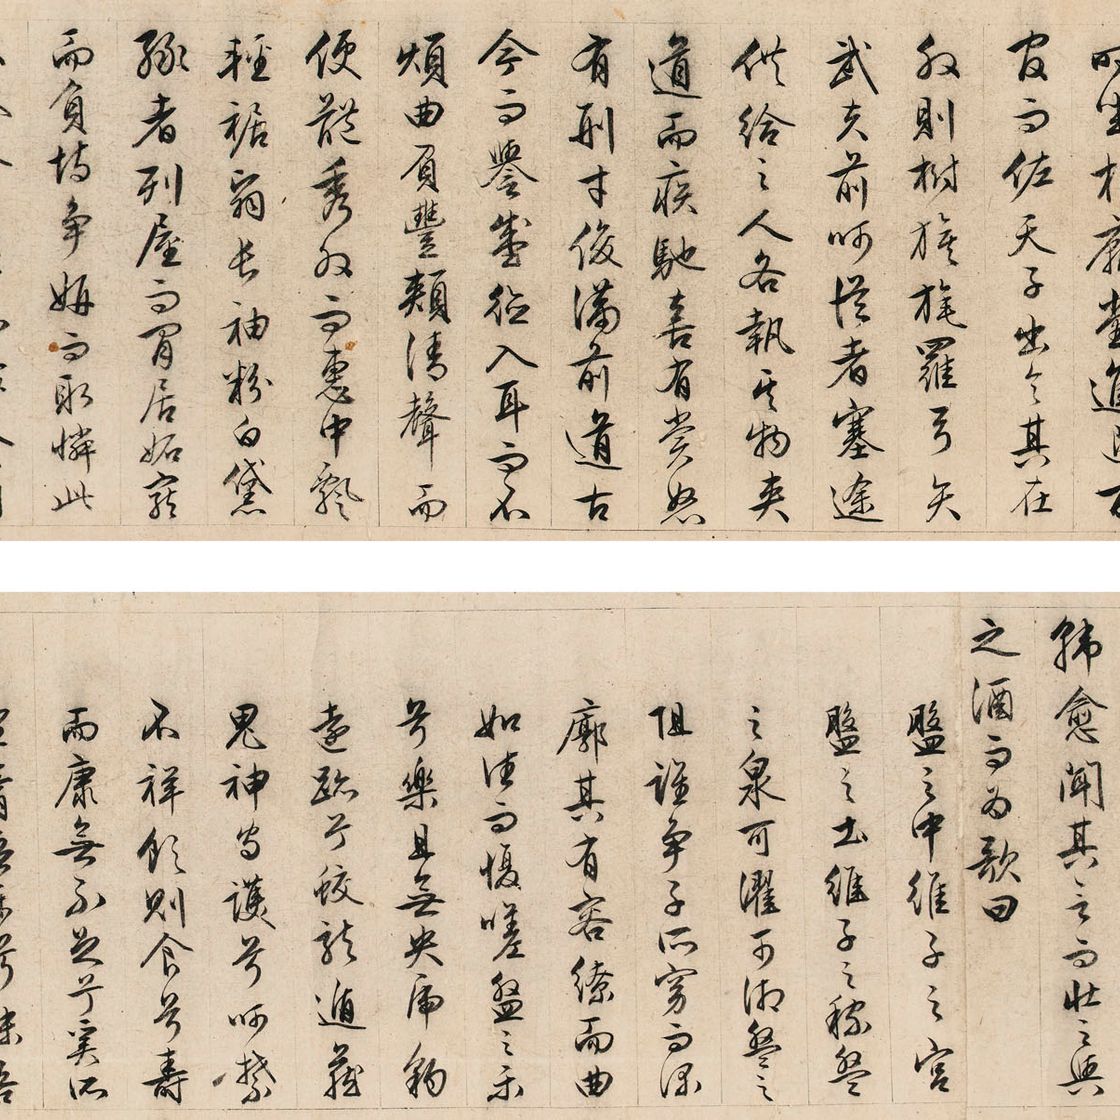 坐於廟堂進退百
官而佐天子出令其在
外則樹旗旄羅弓矢
武夫前呵從者塞途
供給之人各執其物夾
道而疾馳喜有賞怒
有刑才俊滿前道古
今而譽盛德入耳而不
煩曲眉豐頰清聲而
便體秀外而惠中飄
輕裾翳長袖粉白黛
綠者列屋而閒居妬寵
而負恃爭妍而取憐此
韓愈聞其言而壯之與
之酒而為歌曰
盤之中維子之宮
盤之土維子之稼盤
之泉可濯可湘盤之
阻誰爭子所窈而深
廓其有容繚而曲
如往而復嗟盤之樂
兮樂且無央虎豹
遠跡兮蛟龍遁藏
鬼神守護兮呵禁
不祥飲則食兮壽
而康無不足兮奚所
膏吾車兮秣吾